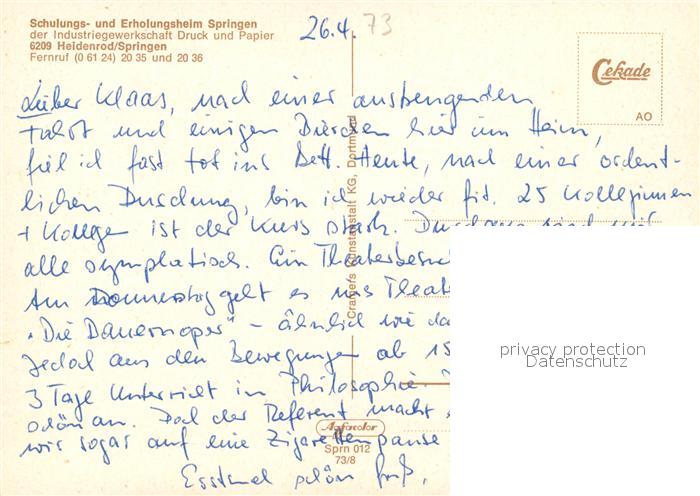 Schulungs- und Erholungsheim Springen
der Industriegewerkschaft Druck und Papier
6209 Heidenrod/Springen
Fernruf (0 61 24) 20 35 und 20 36
26.4. 73
Cekade
AO
Lieber Klaas, nach einer anstrengenden
Fahrt und einigen Bierchen hier im Heim,
fiel ich fast tot ins Bett. Heute, nach einer ordent-
lichen Duschung, bin ich wieder fit. 25 Kolleginnen
+ Kollegen ist der Kurs stark.
alle symphatisch. Ein Theaterbesuch
Am Donnerstag geht es ins Theater
"Die Bauernoper" - ähnlich wie
Jedoch aus den Bewegungen ab 15
3 Tage Unterricht in Philosophie.
schön an. Doch der Referent macht
wir sogar auf eine Zigarettenpause
schön
Cramers Kunstanstalt KG, Dortmund
Agfacolor
Sprn 012
73/8
privacy protection
Datenschutz